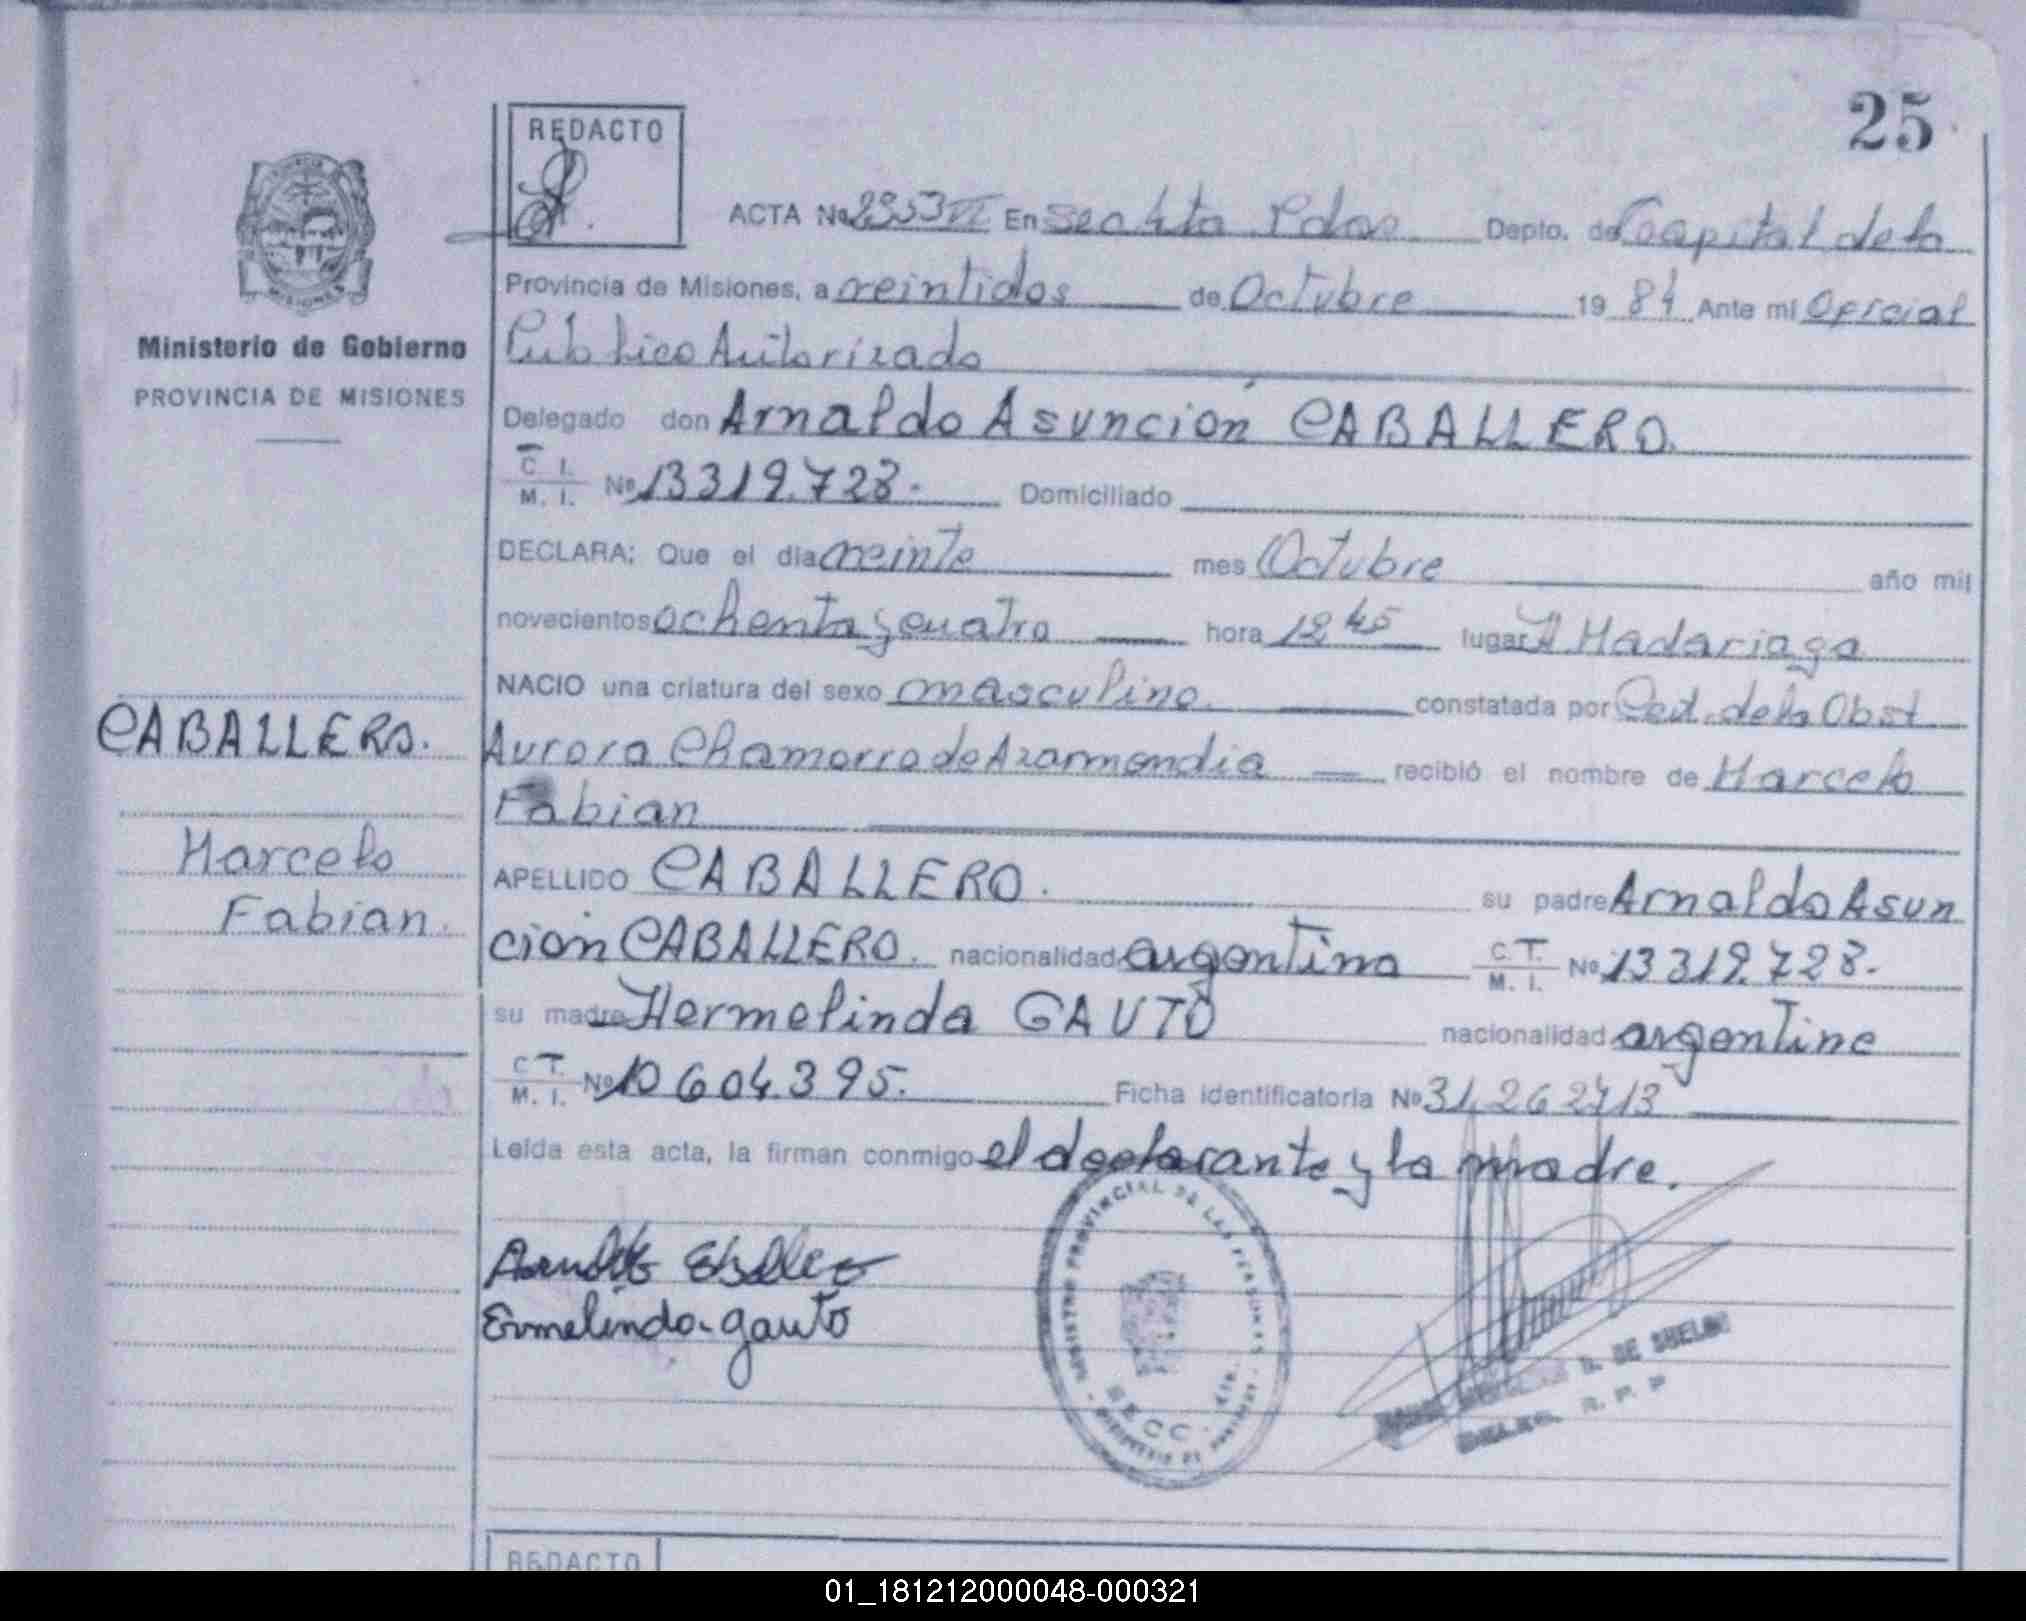 25
REDACTO
ACTA No 2953 VI En Sec 4ta Pdas Depto. de Capital de la
Provincia de Misiones, a veintidos de Octubre 19 84 Ante mi Oficial
Publico Autorizado
Ministerio de Gobierno
PROVINCIA DE MISIONES
Delegado don Arnaldo Asunción CABALLERO.
C. I. M. I. No 13319.728. Domiciliado
DECLARA: Que el dia veinte mes Octubre año mil
novecientos ochenta y cuatro hora 12 45 lugar H Madariaga
NACIO una criatura del sexo masculino. constatada por Cert. de la Obst
Aurora Chamorro de Azarmendia recibió el nombre de Marcelo
Fabian
CABALLERO.
Marcelo
Fabian.
APELLIDO CABALLERO. su padre Arnaldo Asun
ción CABALLERO. nacionalidad argentino C. I. M. I. No 13319.728.
su madre Hermelinda GAUTO nacionalidad argentina
C. I. M. I. No 10604.395. Ficha identificatoria No 31,262713
Leida esta acta, la firman conmigo el declarante y la madre.
Ermelinda. gauto
REGISTRO PROVINCIAL DE LAS PERSONAS
SECC. 4ta.
D. DE
R. P. P
REDACTO
01_181212000048-000321